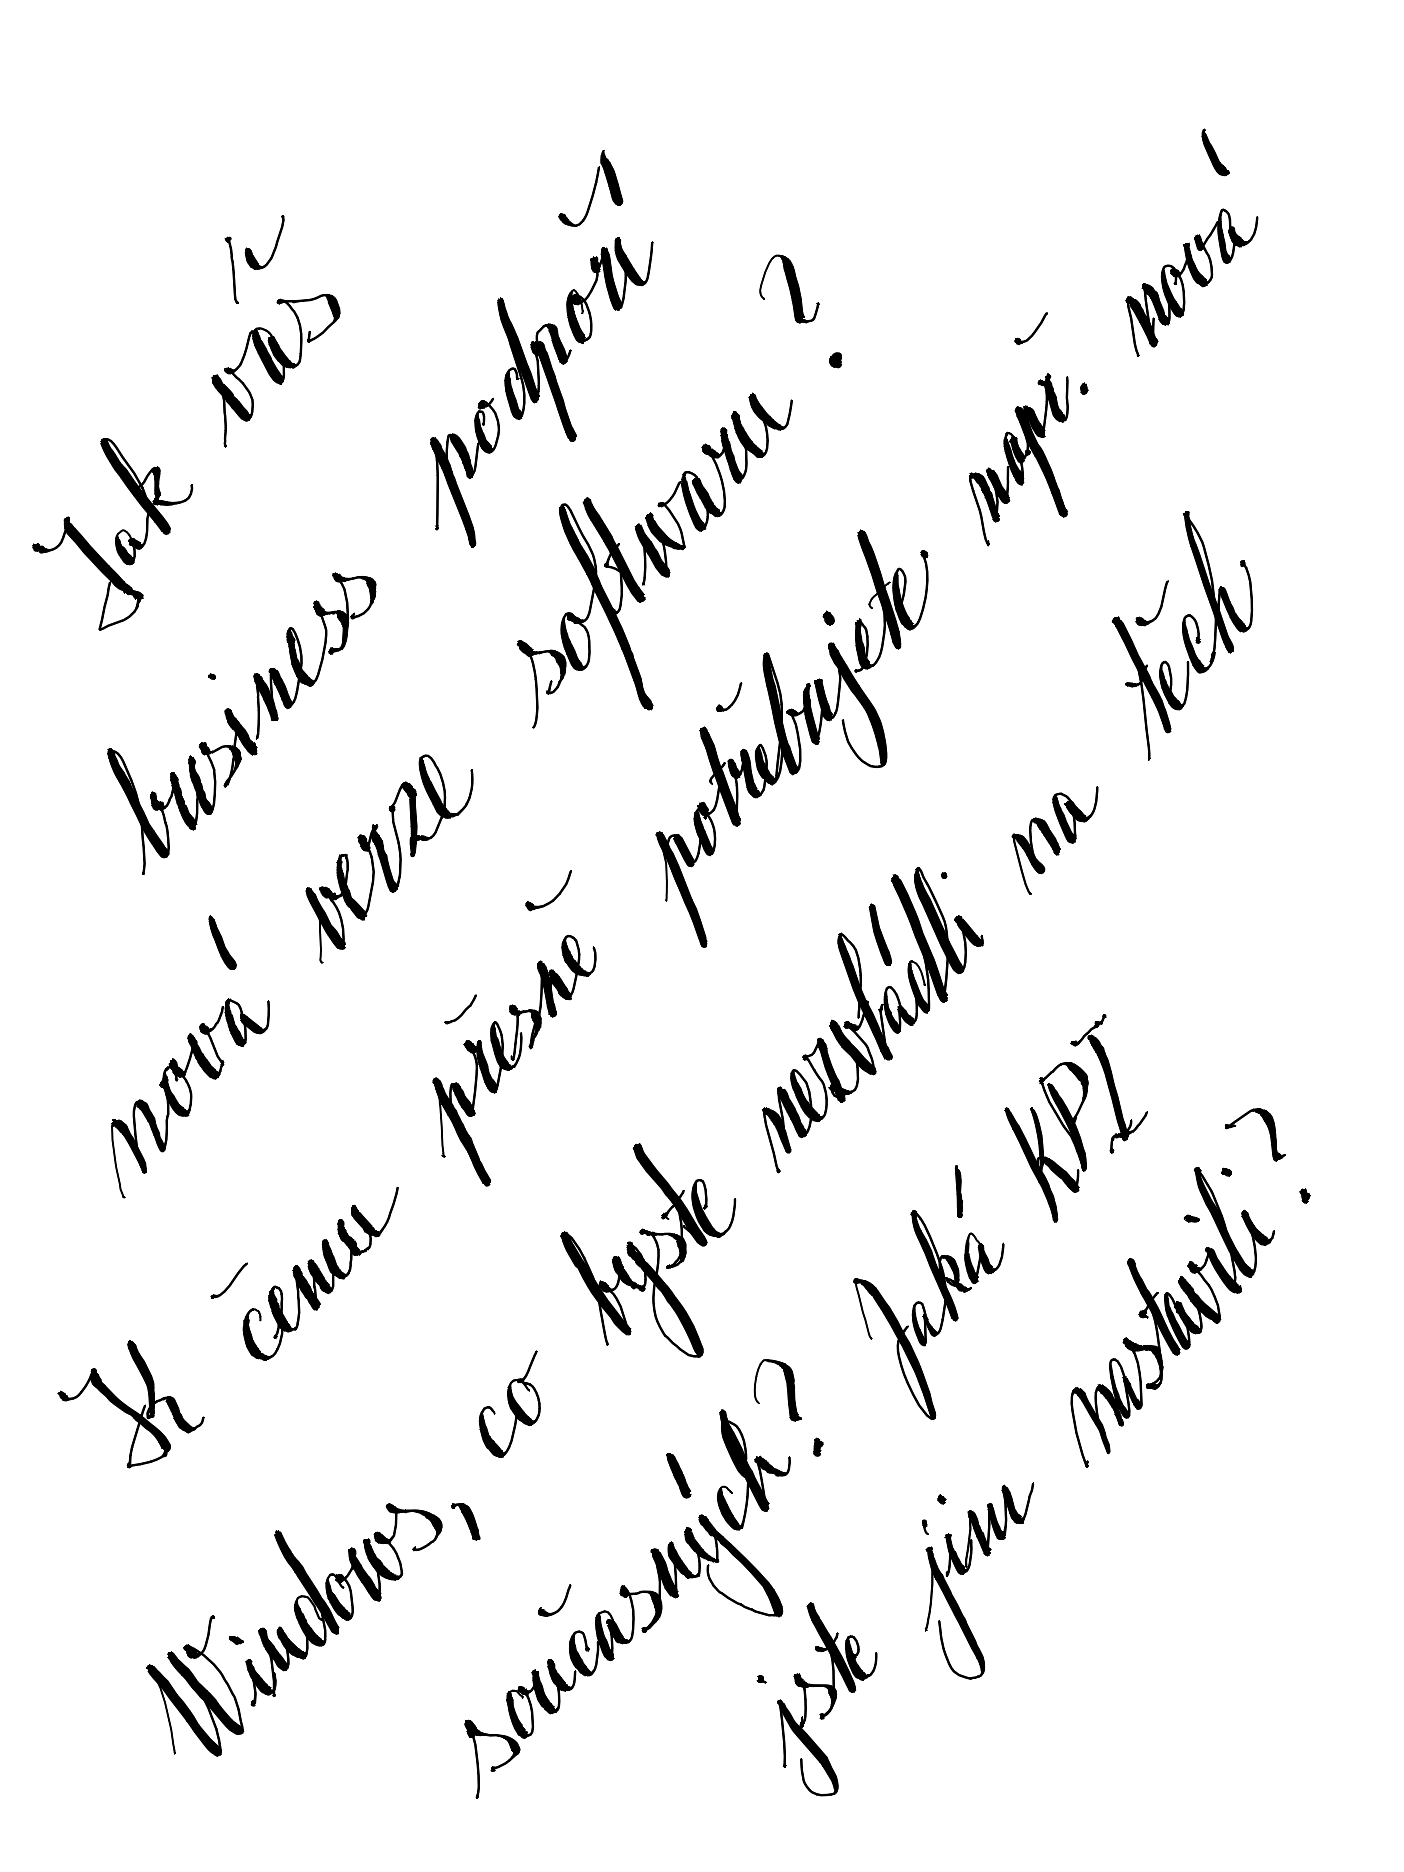 Jak váš
business podpoří
nová verze softwaru?
K čemu přesně potřebujete např. nová
Windows, co byste nezvládli na těch
současných? Jaká KPI
jste jim nastavili?